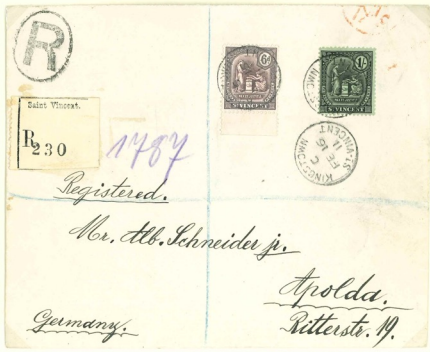 R
Saint Vincent.
R 230
1787
6d
ST VINCENT
1/-
ST VINCENT
KINGSTOWN
ST. VINCENT
C
FE 16
11
Registered.
Mr. Alb. Schneider jr.
Apolda.
Ritterstr. 19.
Germany.